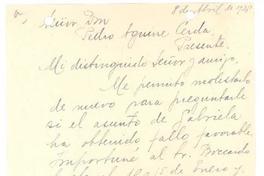 8 de Abril de
Señor Don
Pedro Aguirre Cerda.
Presente.
Mi distinguido Señor y amigo.
Me permito molestarlo
de nuevo para preguntarle
si el asunto de Gabriela
ha obtenido fallo favorable
Importuné al Sr. Boccardo
el 15 de Enero y